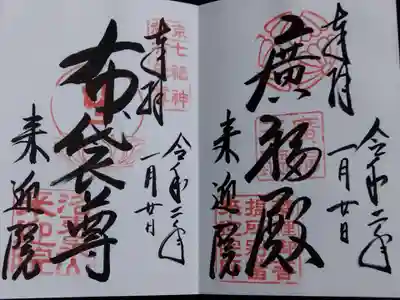 奉拝
廣福殿
来迎院
令和二年
一月廿日
京七福神
奉拝
布袋尊
来迎院
令和二年
一月廿日